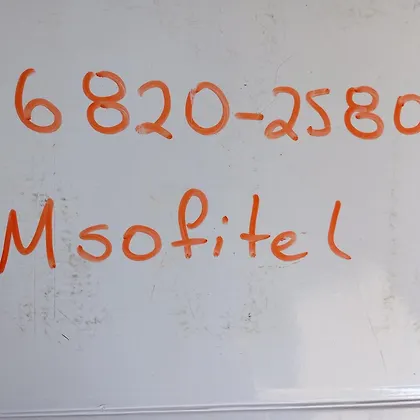 6820-2580
Msofitel